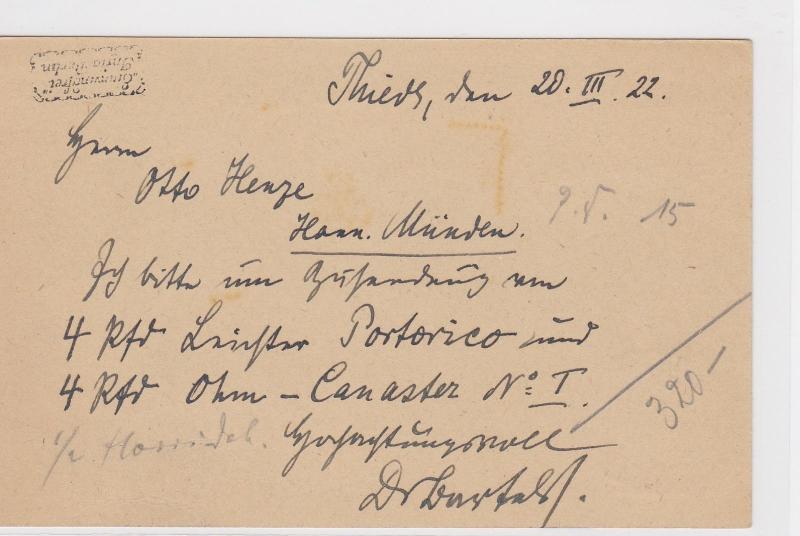 Thiede, den 20. III. 22.
Herrn
Otto Henze
Hann. Münden.
15
Ich bitte um Zusendung von
4 Pfd Leichter Portorico und
4 Pfd Ohm – Canaster No I.
320.–
1/2
Hochachtungsvoll
Dr Bartels.